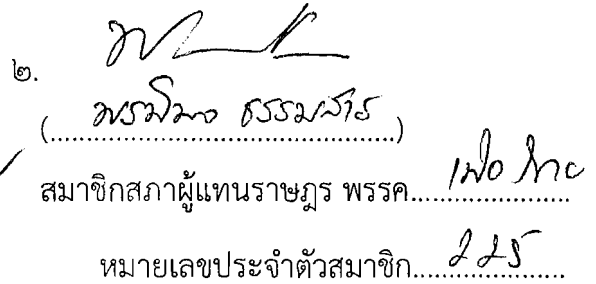 ๒.
(พรพิมล ธรรมสาร)
สมาชิกสภาผู้แทนราษฎร พรรค เพื่อไทย
หมายเลขประจำตัวสมาชิก ๒๒๕